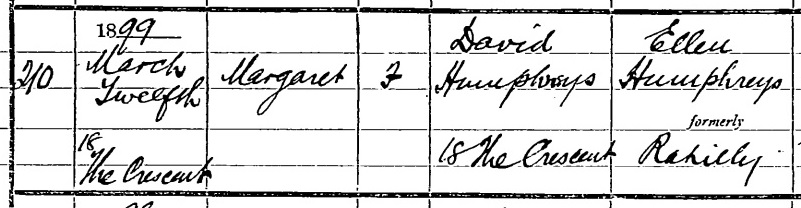 1899
210 March Twelfth
18 The Crescent
Margaret
F
David Humphreys
18 The Crescent
Ellen Humphreys
formerly
Rahilly